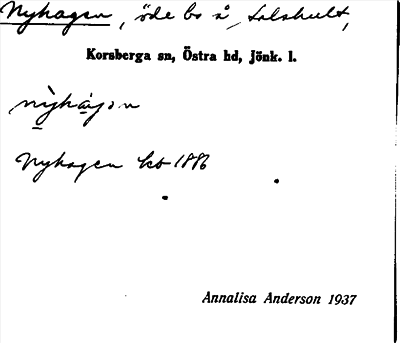 Nyhagen, öde bs å Lolshult,
Korsberga sn, Östra hd, Jönk. l.
nỳhàgən
Nyhagen kb 1886
Annalisa Anderson 1937